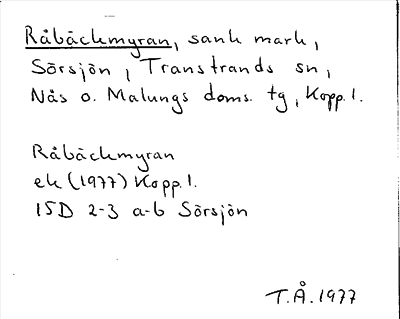 Råbäckmyran, sank mark,
Sörsjön, Transtrands sn,
Nås o. Malungs doms. tg, Kopp. l.
Råbäckmyran
ek (1977) Kopp. l.
15D 2-3 a-b Sörsjön
T.Å. 1977